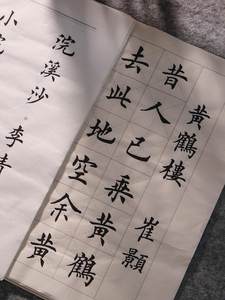 黄鶴楼
崔顥
昔人已乘黄鶴
去此地空余黄
浣溪沙
李清
小院